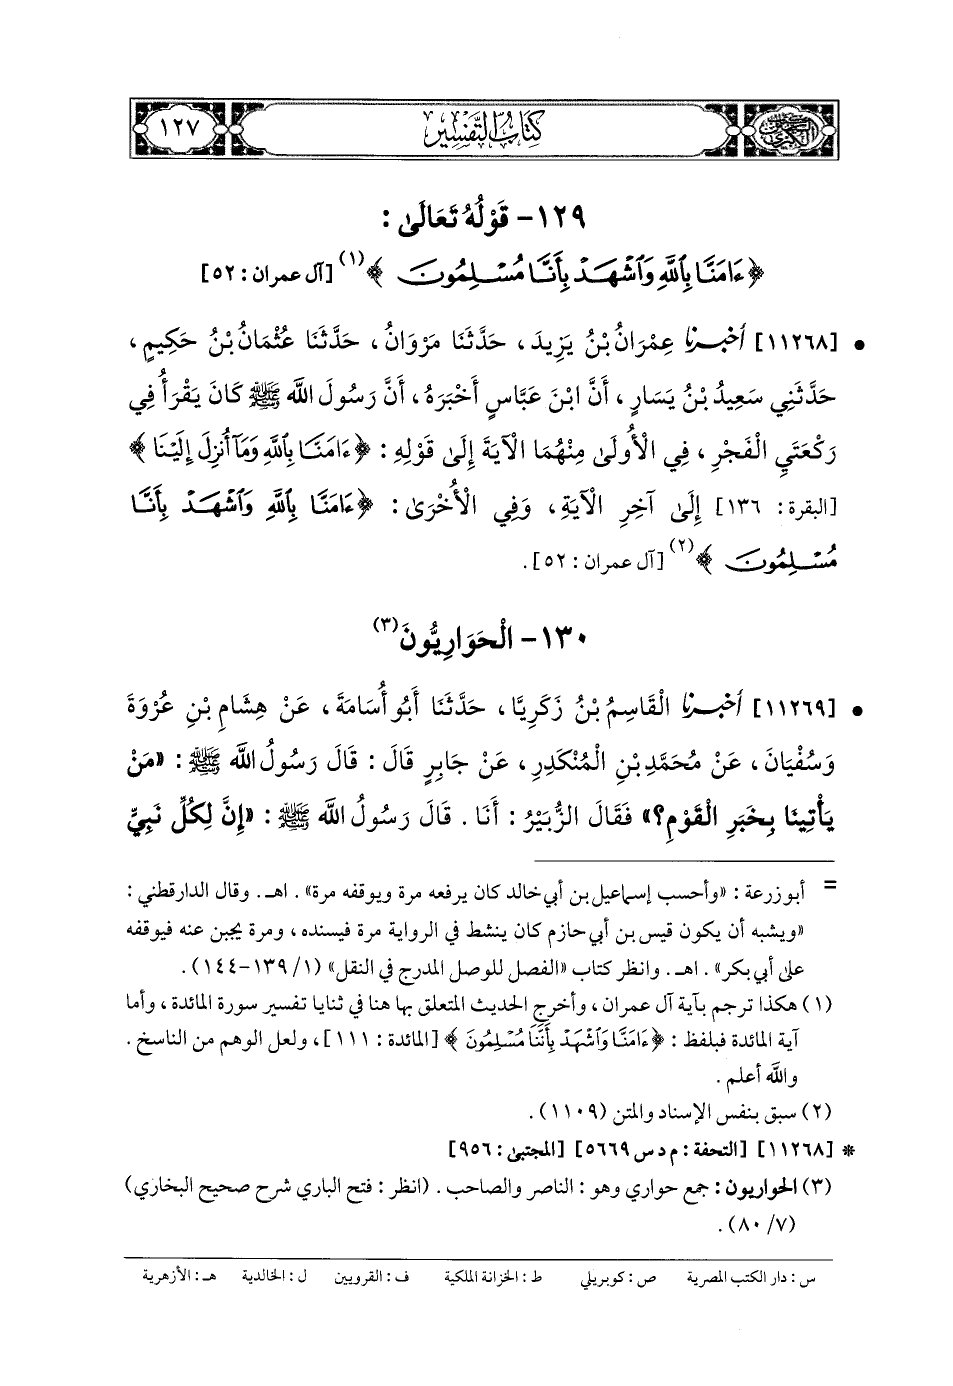 كتاب التفسير ١٢٧
١٢٩- قَوْلُهُ تَعَالَى :
﴿ءَامَنَّا بِاللَّهِ وَاشْهَدْ بِأَنَّا مُسْلِمُونَ﴾(١) [آل عمران : ٥٢]
• [١١٢٦٨] أخبرنا عِمْرَانُ بْنُ يَزِيدَ، حَدَّثَنَا مَرْوَانُ، حَدَّثَنَا عُثْمَانُ بْنُ حَكِيمٍ،
حَدَّثَنِي سَعِيدُ بْنُ يَسَارٍ، أَنَّ ابْنَ عَبَّاسٍ أَخْبَرَهُ، أَنَّ رَسُولَ اللَّهِ ﷺ كَانَ يَقْرَأُ فِي
رَكْعَتَيِ الْفَجْرِ، فِي الْأُولَى مِنْهُمَا الْآيَةَ إِلَى قَوْلِهِ : ﴿ءَامَنَّا بِاللَّهِ وَمَا أُنزِلَ إِلَيْنَا﴾
[البقرة : ١٣٦] إِلَى آخِرِ الْآيَةِ، وَفِي الْأُخْرَى : ﴿ءَامَنَّا بِاللَّهِ وَاشْهَدْ بِأَنَّا
مُسْلِمُونَ﴾(٢) [آل عمران : ٥٢].
١٣٠- الْحَوَارِيُّونَ(٣)
• [١١٢٦٩] أخبرنا الْقَاسِمُ بْنُ زَكَرِيَّا، حَدَّثَنَا أَبُو أُسَامَةَ، عَنْ هِشَامِ بْنِ عُرْوَةَ
وَسُفْيَانَ، عَنْ مُحَمَّدِ بْنِ الْمُنْكَدِرِ، عَنْ جَابِرٍ قَالَ : قَالَ رَسُولُ اللَّهِ ﷺ : «مَنْ
يَأْتِينَا بِخَبَرِ الْقَوْمِ؟» فَقَالَ الزُّبَيْرُ : أَنَا. قَالَ رَسُولُ اللَّهِ ﷺ : «إِنَّ لِكُلِّ نَبِيٍّ
= أبو زرعة : «وأحسب إسماعيل بن أبي خالد كان يرفعه مرة ويوقفه مرة». اهـ. وقال الدارقطني :
«ويشبه أن يكون قيس بن أبي حازم كان ينشط في الرواية مرة فيسنده، ومرة يجبن عنه فيوقفه
على أبي بكر». اهـ. وانظر كتاب «الفصل للوصل المدرج في النقل» (١/ ١٣٩-١٤٤).
(١) هكذا ترجم بآية آل عمران، وأخرج الحديث المتعلق بها هنا في ثنايا تفسير سورة المائدة، وأما
آية المائدة فبلفظ : ﴿ءَامَنَّا وَاشْهَدْ بِأَنَّنَا مُسْلِمُونَ﴾ [المائدة : ١١١]، ولعل الوهم من الناسخ.
والله أعلم.
(٢) سبق بنفس الإسناد والمتن (١١٠٩).
* [١١٢٦٨] [التحفة : م د س ٥٦٦٩] [المجتبى : ٩٥٦]
(٣) الحواريون : جمع حواري وهو : الناصر والصاحب. (انظر : فتح الباري شرح صحيح البخاري)
(٧/ ٨٠).
س : دار الكتب المصرية ص : كوبريلي ط : الخزانة الملكية ف : القرويين ل : الخالدية هـ : الأزهرية